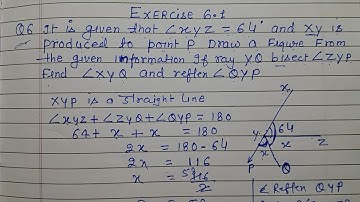 Exercise 6.1
Q6 It is given that ∠XYZ = 64° and XY is
produced to point P Draw a Figure From
the given information If ray YQ bisect ∠ZYP
Find ∠XYQ and reflex ∠QYP
XYP is a straight line
∠XYZ + ∠ZYQ + ∠QYP = 180
64 + x + x = 180
2x = 180 - 64
2x = 116
x = 116
58
2
X
Y
64
x
Z
x
P
Q
∠ Reflex QYP